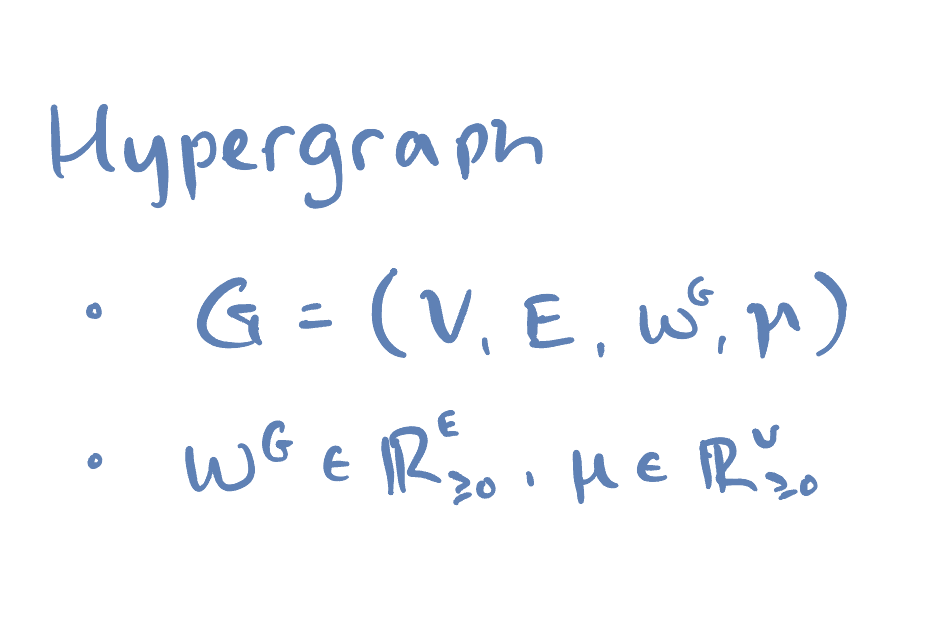 Hypergraph
• G = (V, E, w^G, μ)
• w^G ∈ ℝ^E_≥0, μ ∈ ℝ^V_≥0